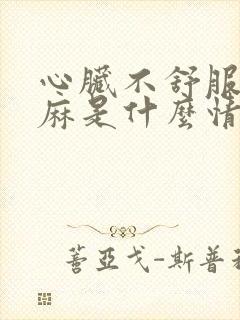 心臟不舒服
麻是什麼情
蓍亞戈-斯普